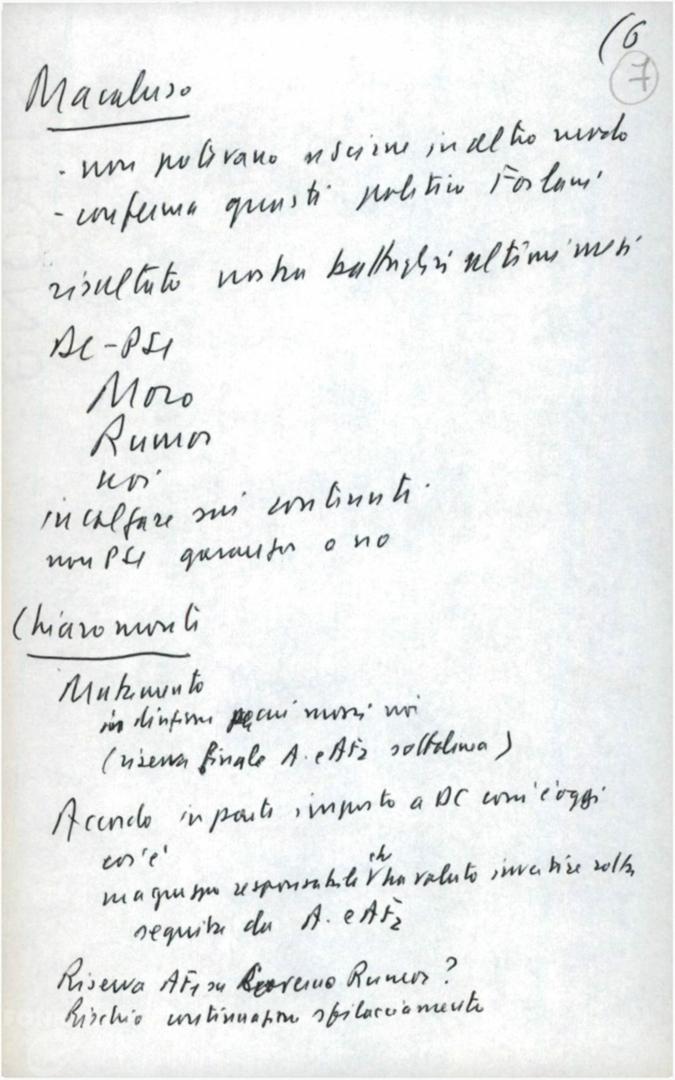 (6
7
Macaluso
- non potevano uscirne in altro modo
- conferma giusta politica Forlani
risultato nostra battaglia ultimi mesi
DC-PSI
Moro
Rumor
noi
incalzare sui contenuti
non PSI garantisce o no
Chiaromonte
Mutamento
in direzione per cui mossi noi
(riserva finale A. e AF2 sottolinea)
Accordo in parte imposto a DC com'è oggi
cos'è
ma gruppo responsabile che ha voluto invertire rotta
seguita da A. e AF2
Riserva AF2 su Governo Rumor?
Rischio continuazione sfilacciamento